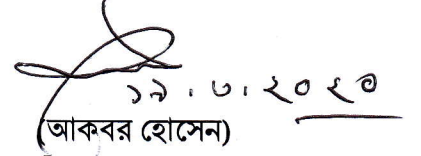 ১৯.৩.২০২০
(আকবর হোসেন)